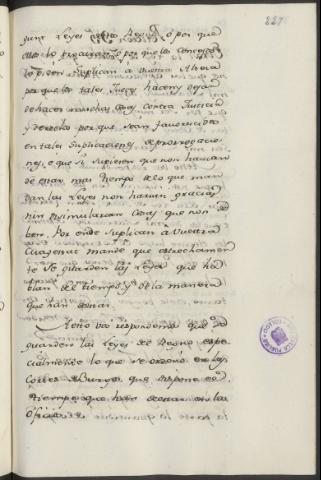 227
sune Leyes Reyno, o por que
ellos lo procuran, o por que las
lo piden suplican a vuestra Alteza
por que los tales Jueces hacen y dejan
de hacer muchas cosas contra Justicia
y derecho por que sean favorecidos
en tales suplicaciones, e prorrogacio
nes, e que si supiesen que non havian
de estar mas tiempo de lo que man
dan las Leyes non harian gracias
nin disimularian cosas que non de
ben. Por ende suplican a Vuestra
mande que estrechamen
te se guarden las Leyes que ha
blan del tiempo, y de la manera
que han de estar.
A esto vos respondemos que se
guarden las Leyes del Reyno espe
cialmente lo que se ordenó en las
Cortes de Burgos que dispone el
tiempo que han de estar en los
oficios